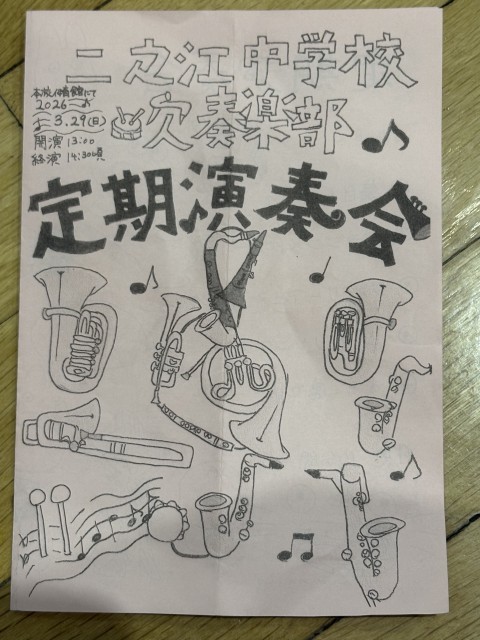 二之江中学校
吹奏楽部
本校体育館にて
2026
3.29(日)
開演 13:00
終演 14:30頃
定期演奏会